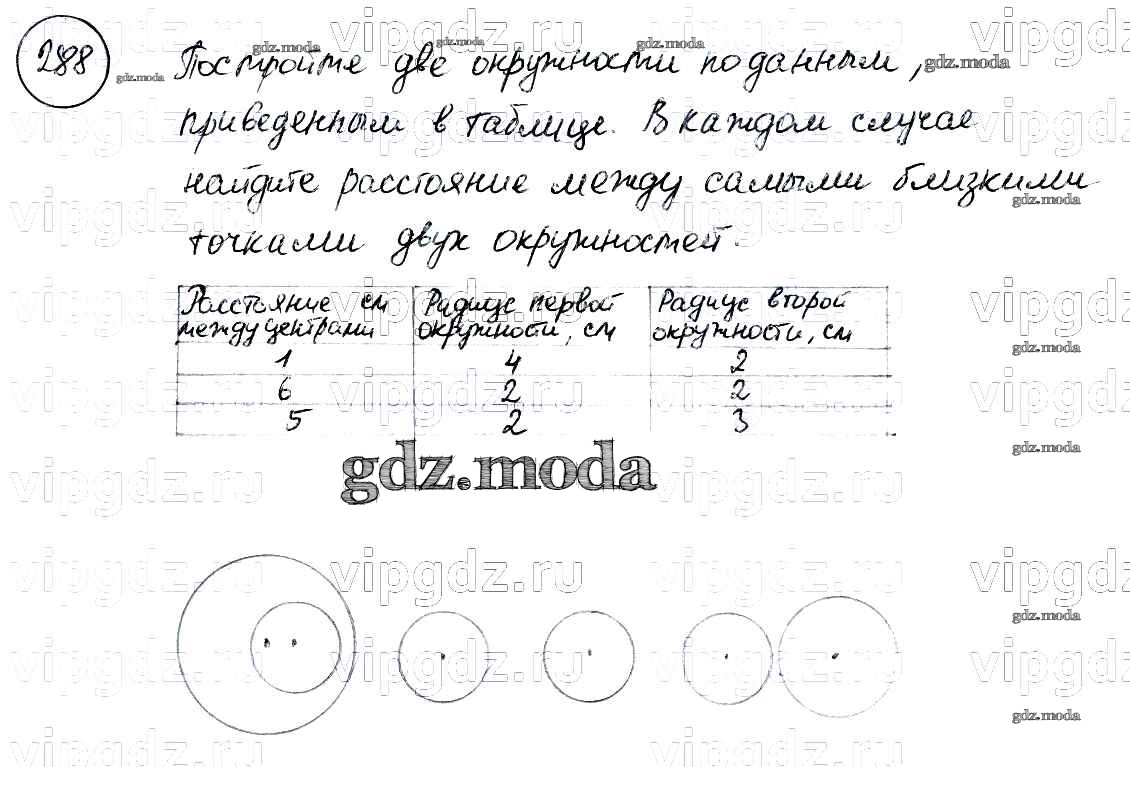 288
Постройте две окружности по данным,
приведенным в таблице. В каждом случае
найдите расстояние между самыми близкими
точками двух окружностей.
Расстояние см
между центрами
Радиус первой
окружности, см
Радиус второй
окружности, см
1 4 2
6 2 2
5 2 3
gdz.moda
vipgdz.ru